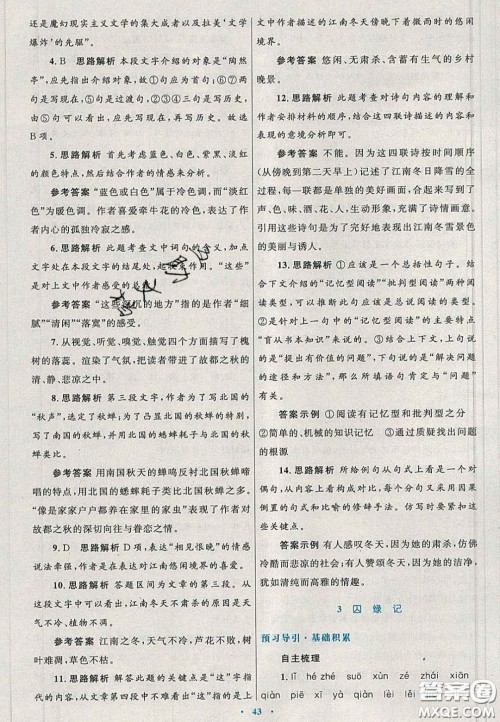 还是魔幻现实主义文学的集大成者以及拉美‘文学
爆炸’的先驱”。
4. B 思路解析 本段文字介绍的对象是“陶然
亭”,所以首先介绍对象,故①句应先写;⑥⑦两句是
一体,而⑤句是过渡句,②③④句写历史,由
此可知,应先写历史,再写⑤句,再写现实。故选
B项。
5. 思路解析 首先考虑蓝色、白色、紫黑、淡红
的颜色特点,然后结合作者的情感来分析。
参考答案 “蓝色或白色”属于冷色调,而“淡红
色”为暖色调。作者喜爱牵牛花的冷色,表达了作者
内心的孤独冷寂之感。
6. 思路解析 此题考查文中词句的含义,加点
文字处在本段文字的结尾处,起
作用。“这些”是
对上文中作者感受的总结。
参考答案 “这些
沉的地方”指的是作者“细
腻”“清闲”“落寞”的感受。
7. 从视觉、听觉、嗅觉、触觉四个方面描写了槐
树的落蕊。渲染了气氛,把读者带进了故都之秋的
清、静、悲凉之中。
8. 思路解析 第三段文字,作者为了写北国的
“秋声”,选定了秋蝉。为了突出北国的秋蝉的特别,
与南国的秋蝉进行了对比,又与北国的蟋蟀耗子来
对比。
参考答案 用南国秋天的蝉鸣反衬北国秋蝉啼
唱的特点,用北国的蟋蟀耗子类比北国秋蝉之多。
“像是家家户户都养在家里的家虫”表现了作者对
故都之秋的深切向往与眷恋之情。
9. D 思路解析 D项,表现“相见恨晚”的情感
说法牵强。作者重在赞美江南的冬景。
10. 思路解析 答题区间为文章的第三段。从
文中找出与原因相关的语句,江南冬天不凋凉来自
天气不冷、植物不凋。
参考答案 江南之冬,天气不冷,芦花不败,树
叶鲜艳,草色不枯。
11. 思路解析 解答的关键点是“这”字指代的
内容,从文章第四段中不难看出,“这”指的是上
文中作者描述的江南冬天傍晚下着微雨时的优闲
境界。
参考答案 悠闲、无肃杀、含蓄着生气的乡村
晚景。
12. 思路解析 此题考查对诗句内容的理解和
作者安排材料的顺序,结合这四联诗描述的内容和
表达的意境分析即可。
参考答案 不能。因为这四联诗按时间顺序
(从傍晚到第二天早上)记述了江南冬日降雪的全
过程,每一联都是单独的美好画面,合到一起,有了
声、色、味、酒、花、人,生动形象,充满了诗情画意。
引用的诗句表现了作者内心的喜悦,表达出江南雪景
的美丽与诱人。
13. 思路解析 ①应该是一个总括性句子。结
合下文介绍的“记忆型阅读”“批判型阅读”的阅读类
型,可以推断此句应该是总说阅读的类型。②的位
置,是针对上一句中的“记忆型阅读”的特点来说的,
“盲从书本知识”来回答的。③结合上下文,上句说
的是“提高”,应是发现问题,下句说的是“解决问题
的途径和方法”,因此此句应填写与“问题”有关的
内容。
答案示例 ①阅读有记忆型和批判型之分
②简单的、机械的知识记忆 ③通过质疑发现问题
14. 思路解析 所给例句从句式上看是一个并
列复句,从内容上看是对人的情感的表现,仿写时要
注意句式和比喻的修辞手法。
答案示例 有人感叹冬天,因为她的肃杀,仿佛
冷酷而悲凉的社会;有人赞颂冬天,因为她的洁净,
犹如清纯而高雅的情趣。
3 囚绿记
预习导引·基础积累
自主梳理
1. lí hézhé suō zé zhāi xiān
qián pí qú qiàn lèi lěi
43
答案圈
MXQE.COM